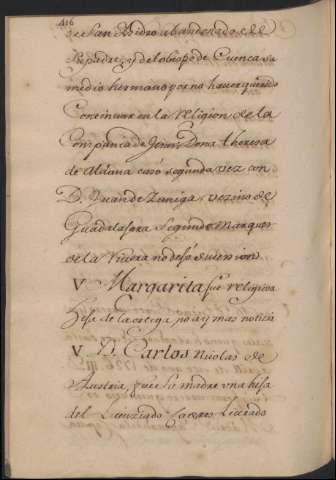 416
de San Ysidro abandonado de
su padre, y del obispo de Cuenca su
medio hermano por no haver querido
Continuar en la religion de la
Compania de Jesus, Dona theresa
de Aldana casó segunda vez con
D. Juan de Zuniga, vezino de
Guadalaxara Segundo Marques
de la no dexó subcesion
V Margarita fue religiosa
Hija de la no ay mas noticia
V D. Carlos Nicolas de
Austria, fue su madre una hija
del Licenciado Lizenado